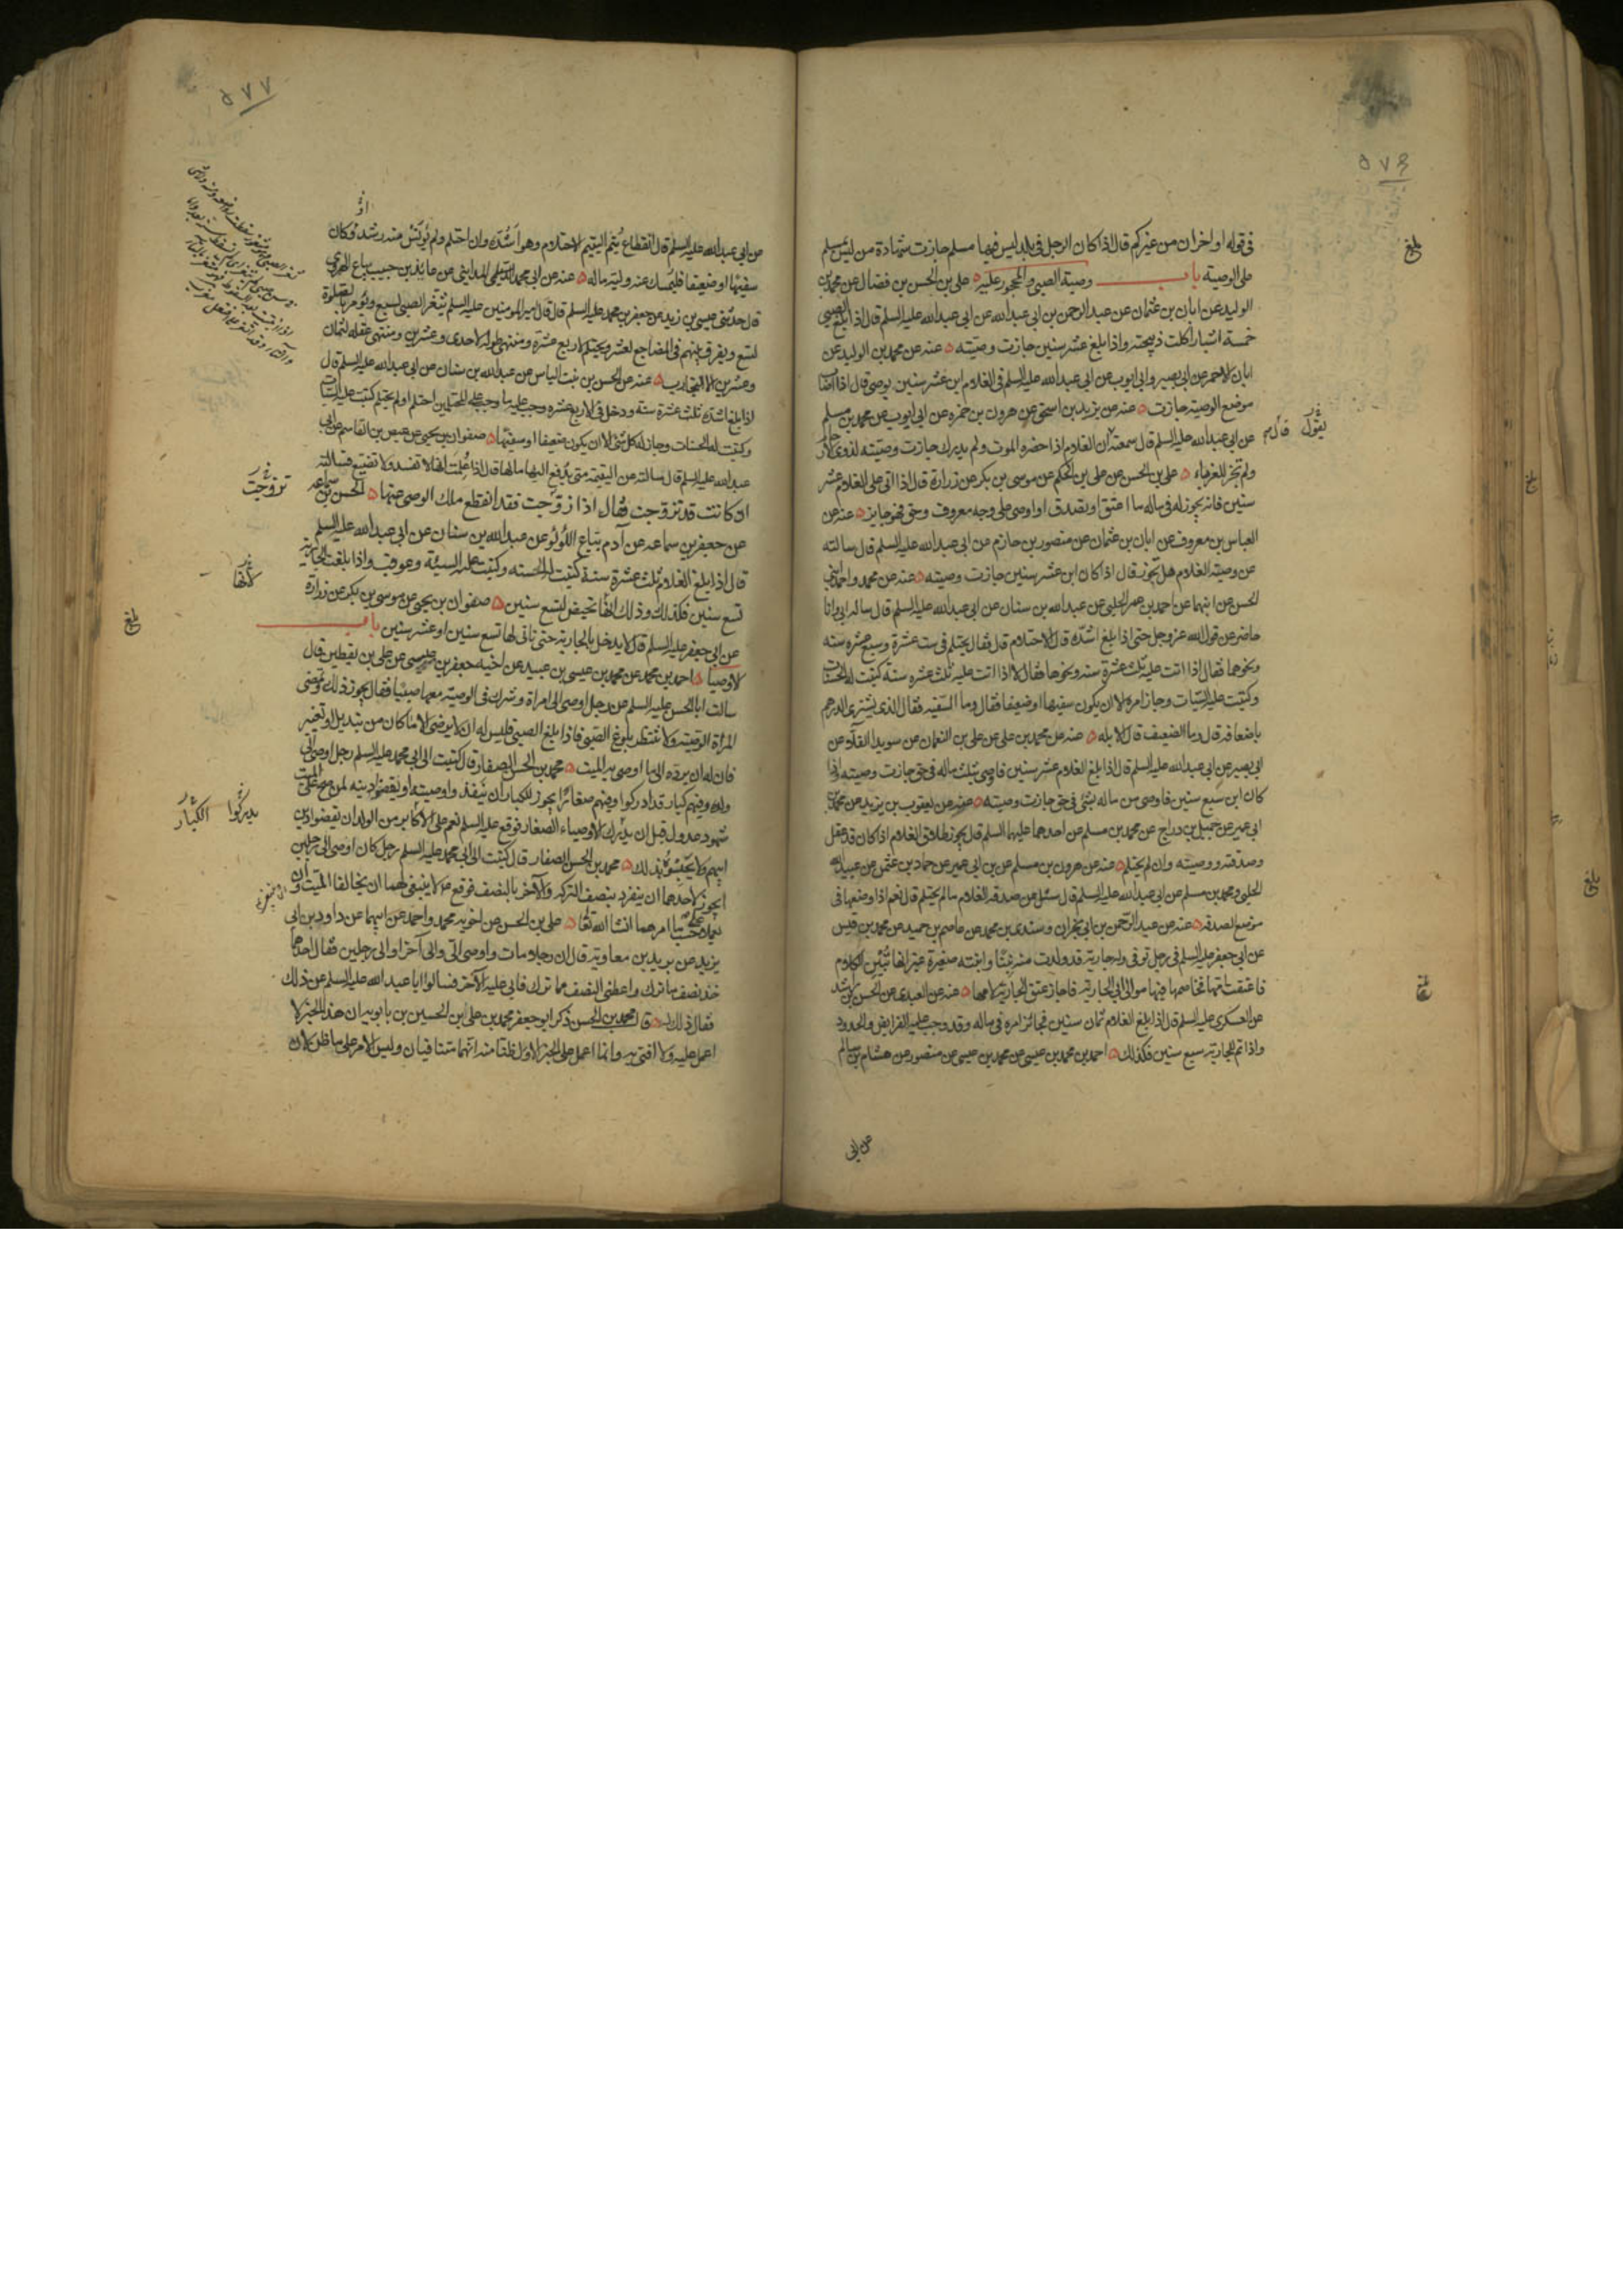 ٥٧٦
في قوله او اخران من غيركم قال اذا كان الرجل في بلد ليس فيها مسلم جازت شهادة من ليس بمسلم
على الوصية باب وصية الصبي والمحجور عليه علي بن الحسن بن فضال عن محمد بن
الوليد عن ابان بن عثمان عن عبد الرحمن بن ابي عبد الله عن ابي عبد الله عليه السلم قال اذا بلغ الصبي
خمسة اشبار اكلت ذبيحته واذا بلغ عشر سنين جازت وصيته عنه عن محمد بن الوليد عن
ابان الاحمر عن ابي بصير وابي ايوب عن ابي عبد الله عليه السلم في الغلام ابن عشر سنين يوصي قال اذا اصاب
موضع الوصية جازت عنه عن يزيد بن اسحق عن هرون بن حمزه عن ابي ايوب عن محمد بن مسلم
عن ابي عبد الله عليه السلم قال سمعته ان الغلام اذا حضره الموت ولم يدرك جازت وصيته لذوي الارحام
يقول قال
ولم تجز للغرباء علي بن الحسن عن علي بن الحكم عن موسى بن بكر عن زرارة قال اذا اتى على الغلام عشر
سنين فانه يجوز له في ماله ما اعتق او تصدق او اوصى على وجه معروف وحق فهو جايز عنه عن
العباس بن معروف عن ابان بن عثمان عن منصور بن حازم عن ابي عبد الله عليه السلم قال سالته
عن وصية الغلام هل تجوز قال اذا كان ابن عشر سنين جازت وصيته عنه عن محمد واحمد ابني
الحسن عن ابيهما عن احمد بن عمر الحلبي عن عبد الله بن سنان عن ابي عبد الله عليه السلم قال ساله ابي وانا
حاضر عن قول الله عز وجل حتى اذا بلغ اشده قال الاحتلام قال فقال يحتلم في ست عشرة وسبع عشره سنه
ونحوهما فقال اذا اتت عليه ثلث عشرة سنه ونحوها فقال لا اذا اتت عليه ثلث عشره سنة كتبت له الحسنات
وكتبت عليه السيات وجاز امره الا ان يكون سفيها او ضعيفا فقال وما السفيه فقال الذي يشتري الدرهم
باضعافه قال وما الضعيف قال الابله عنه عن محمد بن علي عن علي بن النعمان عن سويد القلا عن
ابي بصير عن ابي عبد الله عليه السلم قال اذا بلغ الغلام عشر سنين فاوصى بثلث ماله في حق جازت وصيته اذا
كان ابن سبع سنين فاوصى من ماله بشئ في حق جازت وصيته عنه عن يعقوب بن يزيد عن محمد بن
ابي عمير عن جميل بن دراج عن محمد بن مسلم عن احدهما عليهما السلم قال يجوز طلاق الغلام اذا كان قد عقل
وصدقته ووصيته وان لم يحتلم عنه عن هرون بن مسلم عن بن ابي عمير عن حماد بن عثمن عن عبيد الله
الحلبي ومحمد بن مسلم عن ابي عبد الله عليه السلم قال سئل عن صدقة الغلام ما لم يحتلم قال نعم اذا وضعها في
موضع الصدقه عنه عن عبد الرحمن بن ابي نجران وسندي بن محمد عن عاصم بن حميد عن محمد بن قيس
عن ابي جعفر عليه السلم في رجل توفي وله جارية قد ولدت منه بنتا وابنته صغيرة غير انها تبين الكلام
فاعتقت امها فخاصمها فيها موالي ابي الجارية فاجاز عتق الجارية لامها عنه عن العبدي عن الحسن بن راشد
عن العسكري عليه السلم قال اذا بلغ الغلام ثمان سنين فجائز امره في ماله وقد وجب عليه الفرايض والحدود
واذا تم للجارية سبع سنين فكذلك احمد بن محمد بن عيسى عن محمد بن عيسى عن منصور عن هشام بن سالم
عن ابي
٥٧٧
عن ابي عبد الله عليه السلم قال انقطاع يتم اليتيم الاحتلام وهو اشده وان احتلم ولم يؤنس منه رشد وكان
سفيها او ضعيفا فليمسك عنه وليه ماله عنه عن ابي محمد المدايني عن عائذ بن حبيب بياع الهروي
قال حدثني عيسى بن زيد عن جعفر بن محمد عليه السلم قال قال امير المومنين عليه السلم يثغر الصبي لسبع ويؤمر بالصلوة
لتسع ويفرق بينهم في المضاجع لعشر ويحتلم لاربع عشرة ومنتهى طوله لاحدى وعشرين ومنتهى عقله لثمان
وعشرين الا التجارب عنه عن الحسن بن بنت الياس عن عبد الله بن سنان عن ابي عبد الله عليه السلم قال
اذا بلغ اشده ثلث عشرة سنة ودخل في الاربع عشره وجب عليه ما وجب على المحتلمين احتلم او لم يحتلم كتبت عليه السيات
وكتبت له الحسنات وجاز له كل شئ الا ان يكون ضعيفا او سفيها صفوان بن يحيى عن عيص بن القاسم عن ابي
عبد الله عليه السلم قال سالته عن اليتيمة متى يدفع اليها مالها قال اذا علمت انها لا تفسد ولا تضيع فسالته
ان كانت قد تزوجت فقال اذا زوجت فقد انقطع ملك الوصي عنها الحسن بن سماعه
تزوجت
عن جعفر بن سماعه عن آدم بياع اللؤلؤ عن عبد الله بن سنان عن ابي عبد الله عليه السلم
قال اذا بلغ الغلام ثلث عشرة سنة كتبت له الحسنه وكتبت عليه السيئة وعوقب واذا بلغت الجارية
تسع سنين فكذلك وذلك انها تحيض لتسع سنين صفوان بن يحيى عن موسى بن بكر عن زرارة
لانها
عن ابي جعفر عليه السلم قال لا يدخل بالجارية حتى تاتي لها تسع سنين او عشر سنين باب
الاوصيا احمد بن محمد عن محمد بن عيسى بن عبيد عن اخيه جعفر بن عيسى عن علي بن يقطين قال
سالت ابا الحسن عليه السلم عن رجل اوصى الى امراة وشرك في الوصية معها صبيا فقال يجوز ذلك وتمضي
المراة الوصية ولا تنتظر بلوغ الصبي فاذا بلغ الصبي فليس له ان لا يرضى الا ما كان من تبديل او تغيير
فان له ان يرده الى ما اوصى به الميت محمد بن الحسن الصفار قال كتبت الى ابي محمد عليه السلم رجل اوصى الى
ولده وفيهم كبار قد ادركوا وفيهم صغار ايجوز للكبار ان ينفذوا وصيته او يقضوا دينه لمن صح على الميت
شهود عدول قبل ان يدرك الاوصياء الصغار فوقع عليه السلم نعم على الاكابر من الولد ان يقضوا دين
يدركوا الكبار
ابيهم ولا يحبسوه بذلك محمد بن الحسن الصفار قال كتبت الى ابي محمد عليه السلم رجل كان اوصى الى رجلين
ايجوز لاحدهما ان ينفرد بنصف التركه والآخر بالنصف فوقع ع لا ينبغي لهما ان يخالفا الميت وان
يعملا على حسب ما امرهما انشا الله تعا علي بن الحسن عن اخويه محمد واحمد عن ابيهما عن داود بن ابي
يزيد عن بريد بن معاوية قال ان رجلا مات واوصى الي والى آخر او الى رجلين فقال احدهما
خذ نصف ما ترك واعطني النصف مما ترك فابى عليه الآخر فسالوا ابا عبد الله عليه السلم عن ذلك
فقال ذلك له قال محمد بن الحسن ذكر ابو جعفر محمد بن علي ابن الحسين بن بابويه ان هذا الخبر لا
اعمل عليه ولا افتي به وانما اعمل على الخبر الاول ظنا منه انهما متنافيان وليس الامر على ما ظن لان
بلغ